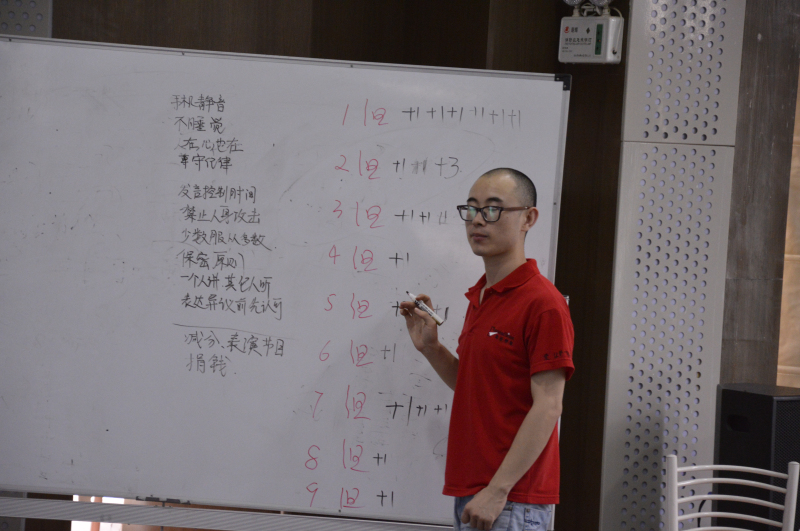 手机静音
不睡觉
人在心也在
守纪律
发言控制时间
禁止人身攻击
少数服从多数
保密原则
一个人讲其它人听
表达异议前表认可
减分、表演节目
捐钱
1 组 +1 +1 +1 +1 +1 +1
2 组 +1 +3
3 组 +1 +1
4 组 +1
5 组
6 组 +1
7 组 +1 +1 +1
8 组 +1
9 组 +1